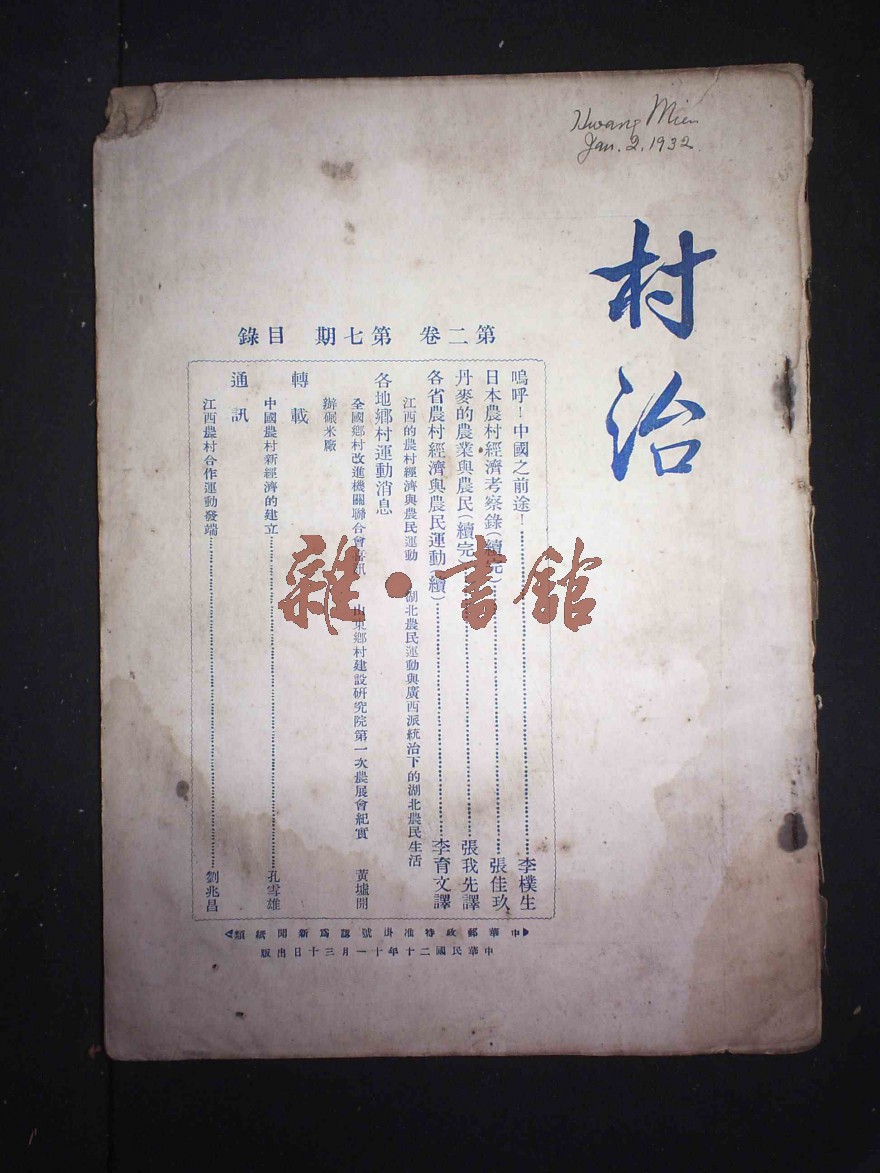 Hwang Mien
Jan. 2. 1932
村治
第二卷 第七期 目錄
嗚呼！中國之前途！……李樸生
日本農村經濟考察錄（續完）……張佳玖
丹麥的農業與農民（續完）……張我先譯
各省農村經濟與農民運動（續）……李育文譯
江西的農村經濟與農民運動 湖北農民運動與廣西派統治下的湖北農民生活
各地鄉村運動消息
全國鄉村改進機關聯合會 山東鄉村建設研究院第一次農展會紀實 黃墟開
辦碾米廠
轉載
中國農村新經濟的建立……孔雪雄
通訊
江西農村合作運動發端……劉兆昌
中華郵政特准掛號認為新聞紙類
中華民國二十年十一月三十日出版
雜·書館